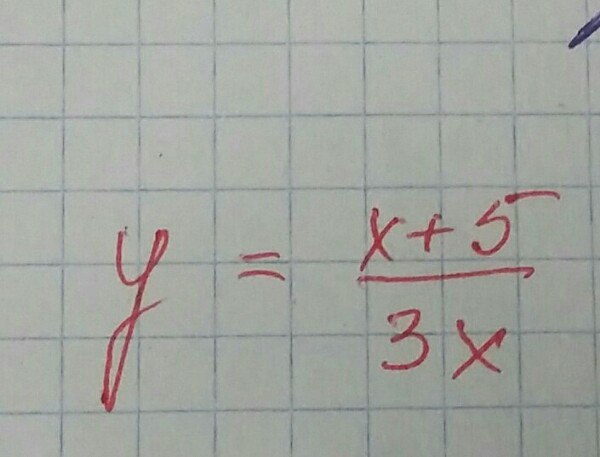 y = \frac{x+5}{3x}